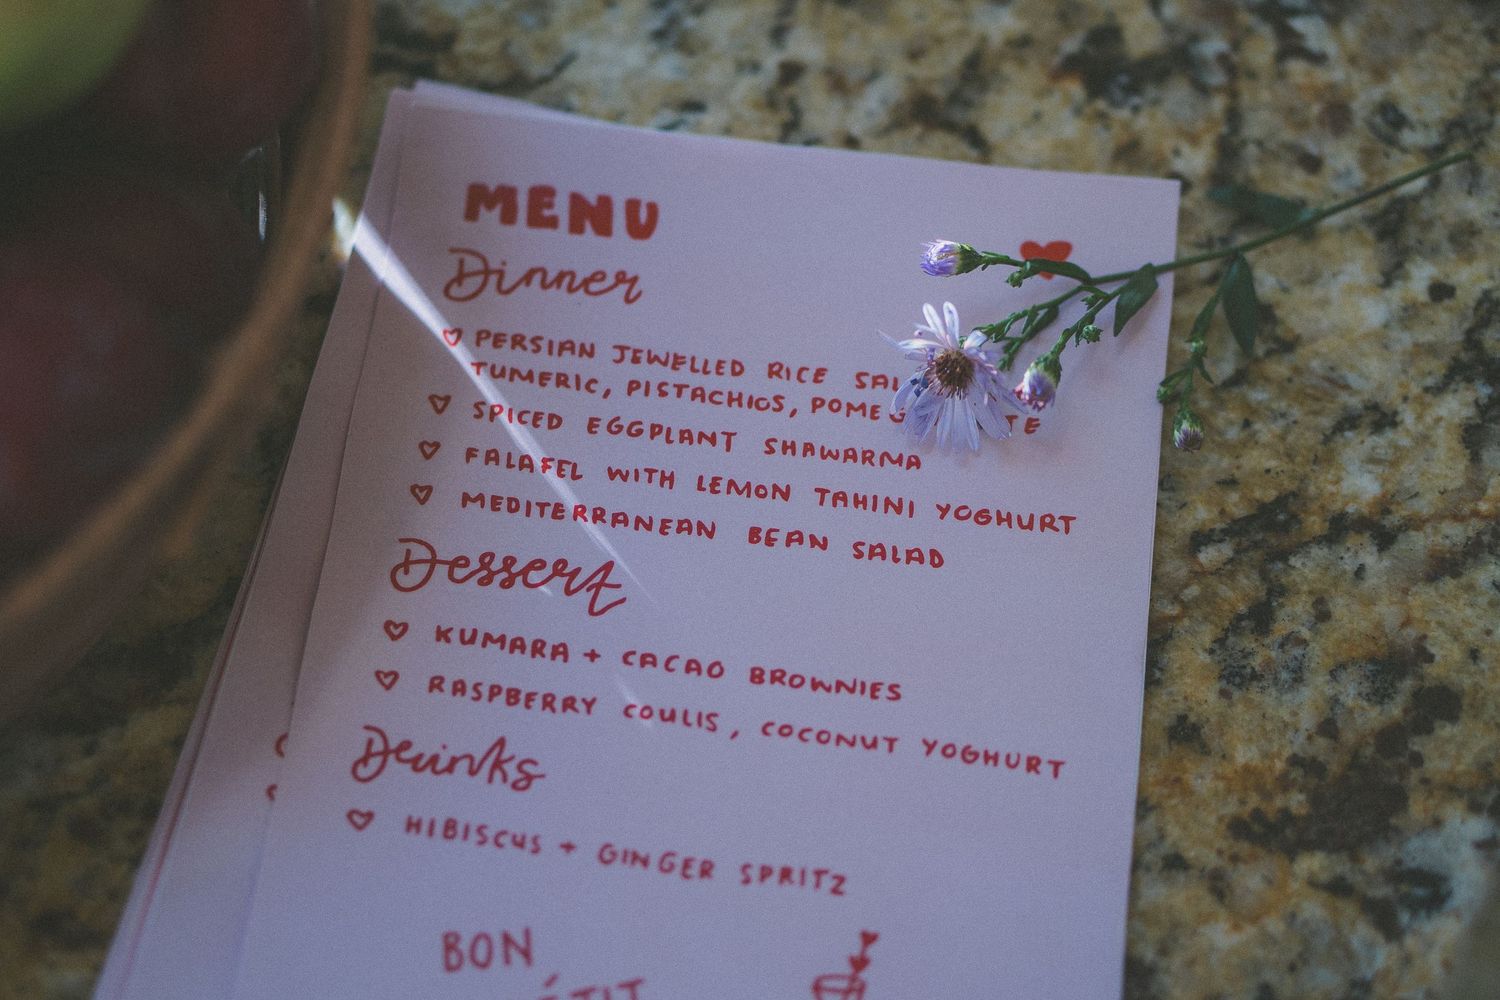 MENU
Dinner
PERSIAN JEWELLED RICE
TUMERIC, PISTACHIOS,
SPICED EGGPLANT SHAWARMA
FALAFEL WITH LEMON TAHINI YOGHURT
MEDITERRANEAN BEAN SALAD
Dessert
KUMARA + CACAO BROWNIES
RASPBERRY COULIS, COCONUT YOGHURT
Drinks
HIBISCUS + GINGER SPRITZ
BON